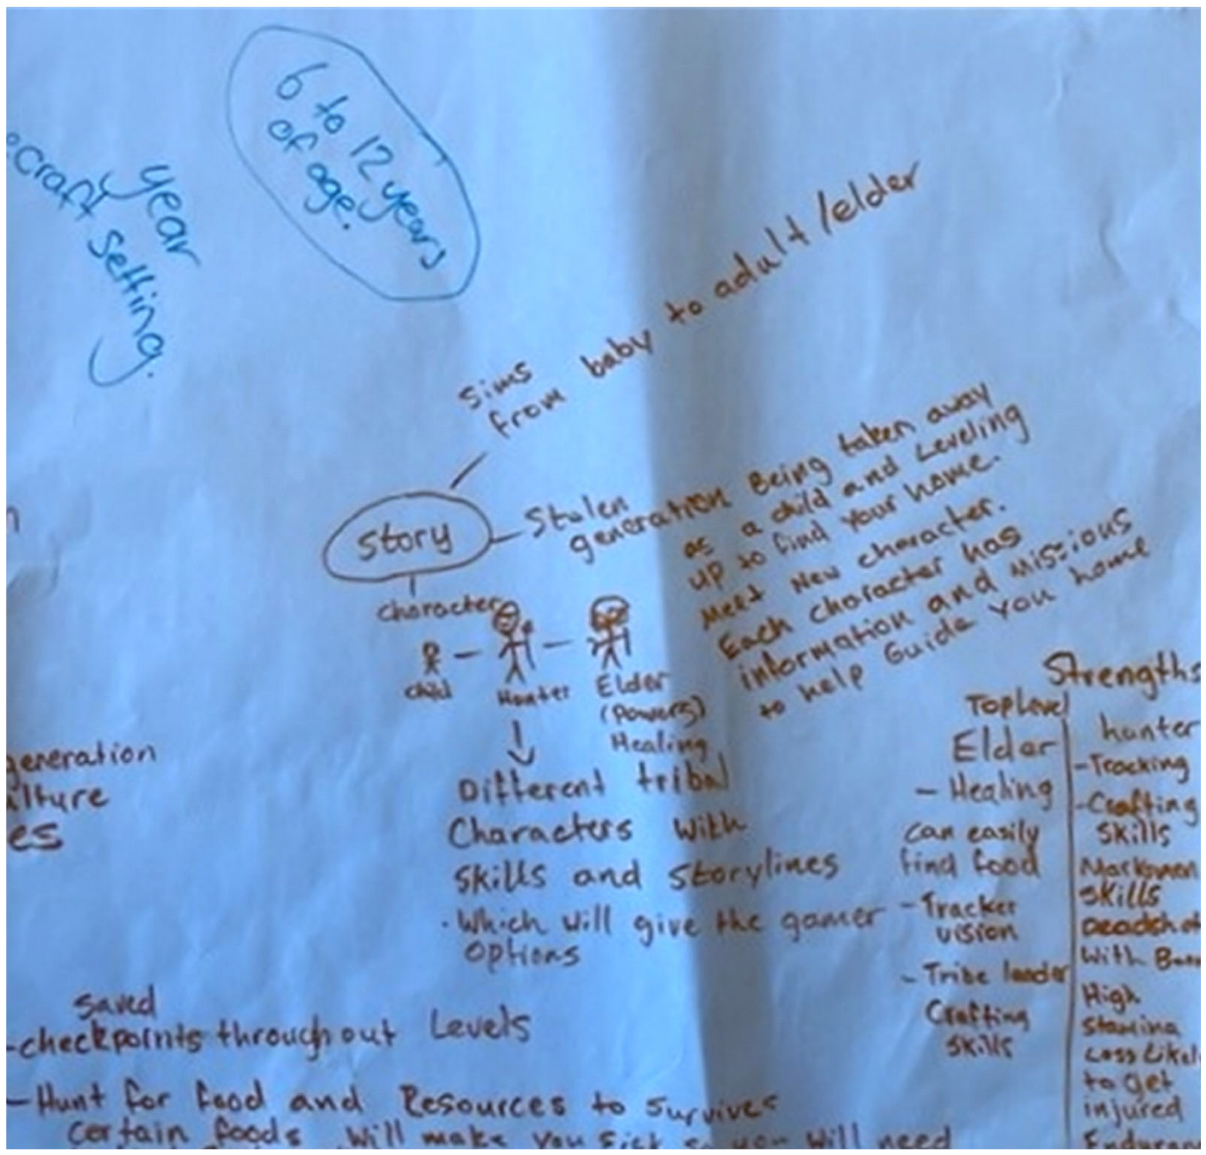 6 to 12 years
of age.
year
craft setting.
Sims
from baby to adult/elder
story
Stolen
generation Being taken away
as a child and Leveling
up to find your home.
Meet New character.
Each character has
information and missions
to help Guide you home
character
child
Hunter
Elder
(powers)
Healing
Different tribal
Characters With
skills and storylines
· Which will give the gamer
options
Strengths
Top Level
Elder
- Healing
can easily
find food
- Tracker
vision
- Tribe leader
Crafting
skills
hunter
- Tracking
- Crafting
skills
skills
With
High
Stamina
to get
injured
generation
es
saved
- checkpoints throughout Levels
- Hunt for food and Resources to survives
Certain foods will make you sick so you will need